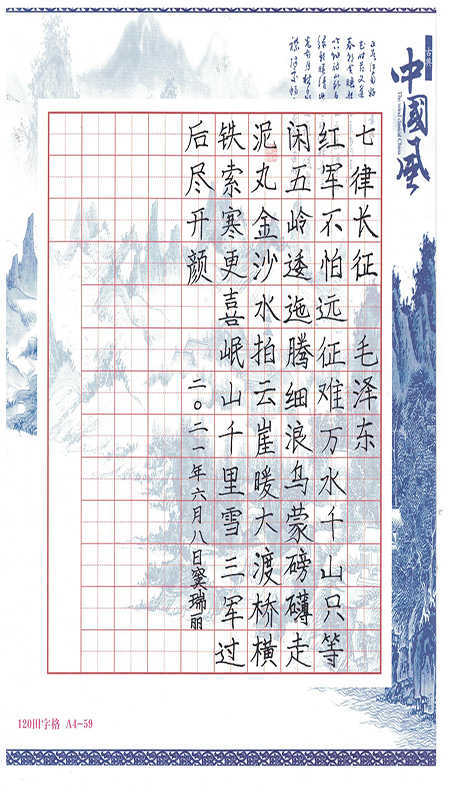 中國風
七律长征 毛泽东
红军不怕远征难万水千山只等
闲五岭逶迤腾细浪乌蒙磅礴走
泥丸金沙水拍云崖暖大渡桥横
铁索寒更喜岷山千里雪三军过
后尽开颜 二〇二一年六月八日窦瑞丽
120田字格 A4-59